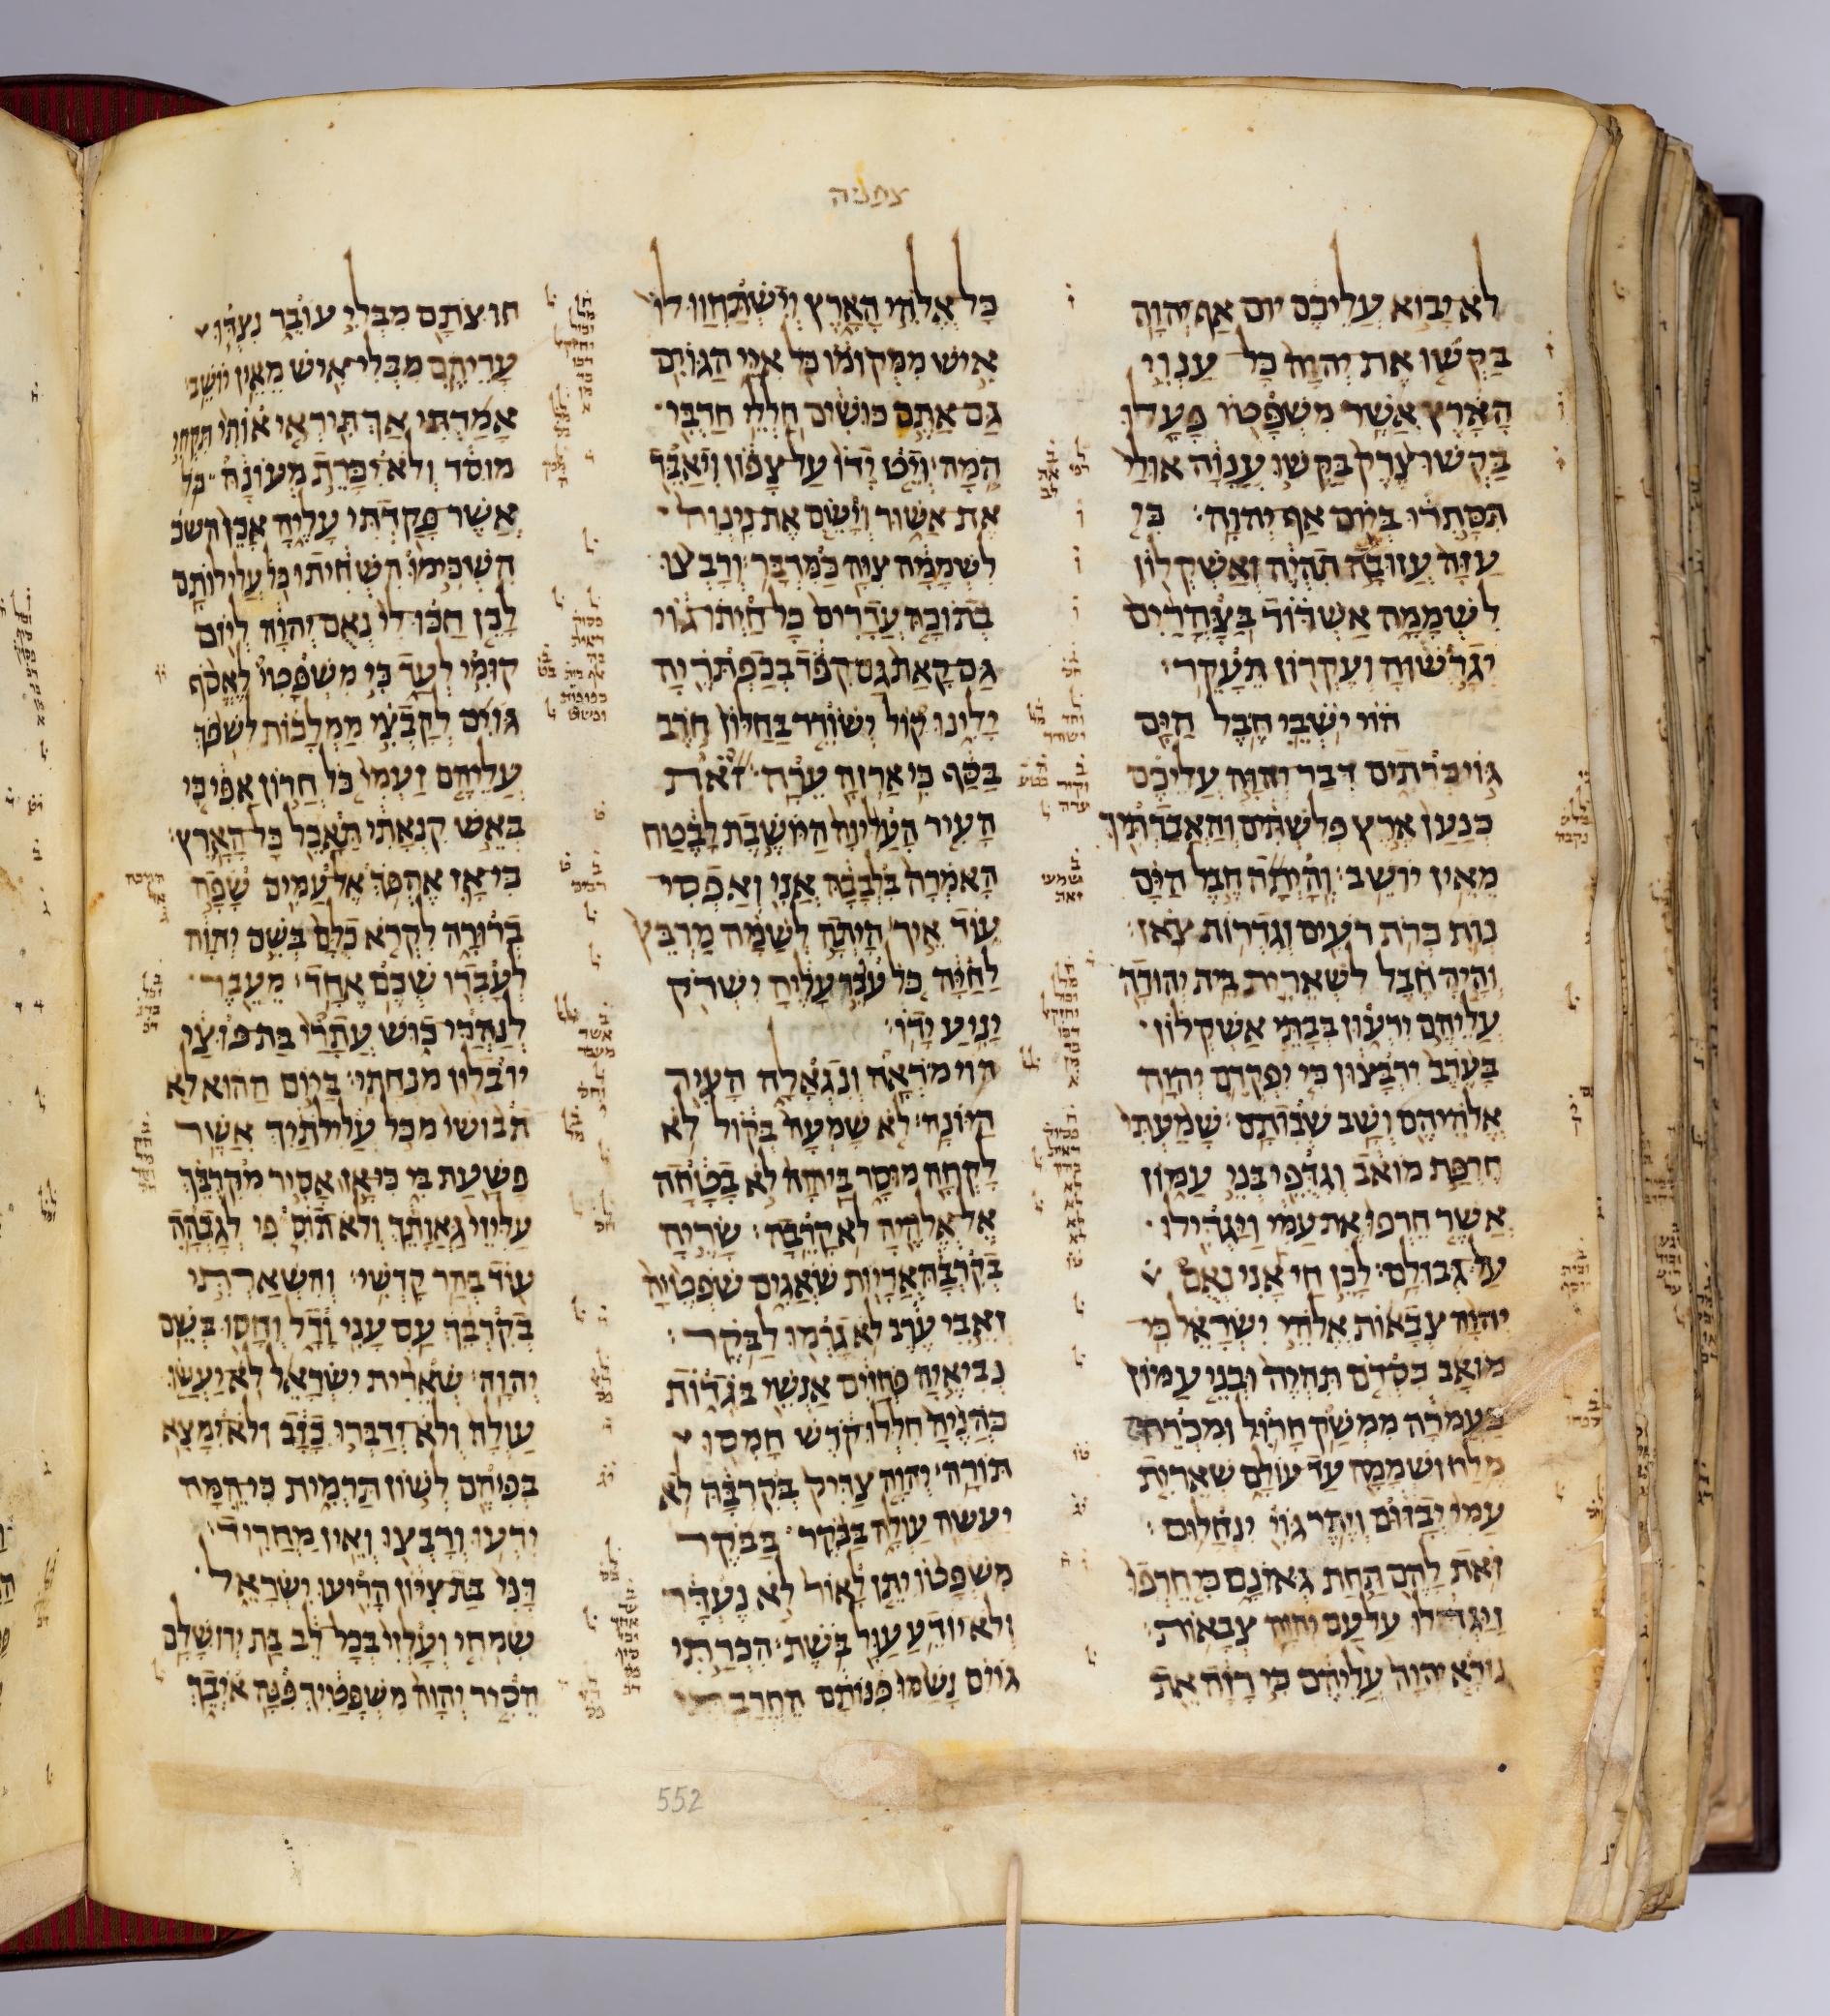 צפניה
לא יבוא עליכם יום אף יהוה
בקשו את יהוה כל ענוי
הארץ אשר משפטו פעלו
בקשו צדק בקשו ענוה אולי
תסתרו ביום אף יהוה׃ כי
עזה עזובה תהיה ואשקלון
לשממה אשדוד בצהרים
יגרשוה ועקרון תעקר׃
הוי ישבי חבל הים
גוי כרתים דבר יהוה עליכם
כנען ארץ פלשתים והאבדתיך
מאין יושב׃ והיתה חבל הים
נות כרת רעים וגדרות צאן׃
והיה חבל לשארית בית יהודה
עליהם ירעון בבתי אשקלון
בערב ירבצון כי יפקדם יהוה
אלהיהם ושב שבותם׃ שמעתי
חרפת מואב וגדפי בני עמון
אשר חרפו את עמי ויגדילו
על גבולם׃ לכן חי אני נאם
יהוה צבאות אלהי ישראל כי
מואב כסדם תהיה ובני עמון
כעמרה ממשק חרול ומכרה
מלח ושממה עד עולם שארית
עמי יבזום ויתר גוי ינחלום׃
זאת להם תחת גאונם כי חרפו
ויגדלו על עם יהוה צבאות׃
נורא יהוה עליהם כי רזה את
כל אלהי הארץ וישתחוו לו
איש ממקומו כל איי הגוים
גם אתם כושים חללי חרבי
המה׃ ויט ידו על צפון ויאבד
את אשור וישם את נינוה
לשממה ציה כמדבר׃ ורבצו
בתוכה עדרים כל חיתו גוי
גם קאת גם קפד בכפתריה
ילינו קול ישורר בחלון חרב
בסף כי ארזה ערה׃ זאת
העיר העליזה היושבת לבטח
האמרה בלבבה אני ואפסי
עוד איך היתה לשמה מרבץ
לחיה כל עובר עליה ישרק
יניע ידו׃
הוי מראה ונגאלה העיר
היונה׃ לא שמעה בקול לא
לקחה מוסר ביהוה לא בטחה
אל אלהיה לא קרבה׃ שריה
בקרבה אריות שאגים שפטיה
זאבי ערב לא גרמו לבקר׃
נביאיה פחזים אנשי בגדות
כהניה חללו קדש חמסו
תורה׃ יהוה צדיק בקרבה לא
יעשה עולה בבקר בבקר
משפטו יתן לאור לא נעדר
ולא יודע עול בשת׃ הכרתי
גוים נשמו פנותם החרבתי
חוצתם מבלי עובר נצדו
עריהם מבלי איש מאין יושב׃
אמרתי אך תיראי אותי תקחי
מוסר ולא יכרת מעונה כל
אשר פקדתי עליה אכן
השכימו השחיתו כל עלילותם
לכן חכו לי נאם יהוה ליום
קומי לעד כי משפטי לאסף
גוים לקבצי ממלכות לשפך
עליהם זעמי כל חרון אפי כי
באש קנאתי תאכל כל הארץ׃
כי אז אהפך אל עמים שפה
ברורה לקרא כלם בשם יהוה
לעבדו שכם אחד׃ מעבר
לנהרי כוש עתרי בת פוצי
יובלון מנחתי׃ ביום ההוא לא
תבושי מכל עלילתיך אשר
פשעת בי כי אז אסיר מקרבך
עליזי גאותך ולא תוסיפי לגבהה
עוד בהר קדשי׃ והשארתי
בקרבך עם עני ודל וחסו בשם
יהוה׃ שארית ישראל לא יעשו
עולה ולא ידברו כזב ולא ימצא
בפיהם לשון תרמית כי המה
ירעו ורבצו ואין מחריד׃
רני בת ציון הריעו ישראל
שמחי ועלזי בכל לב בת ירושלם׃
הסיר יהוה משפטיך פנה איבך
552